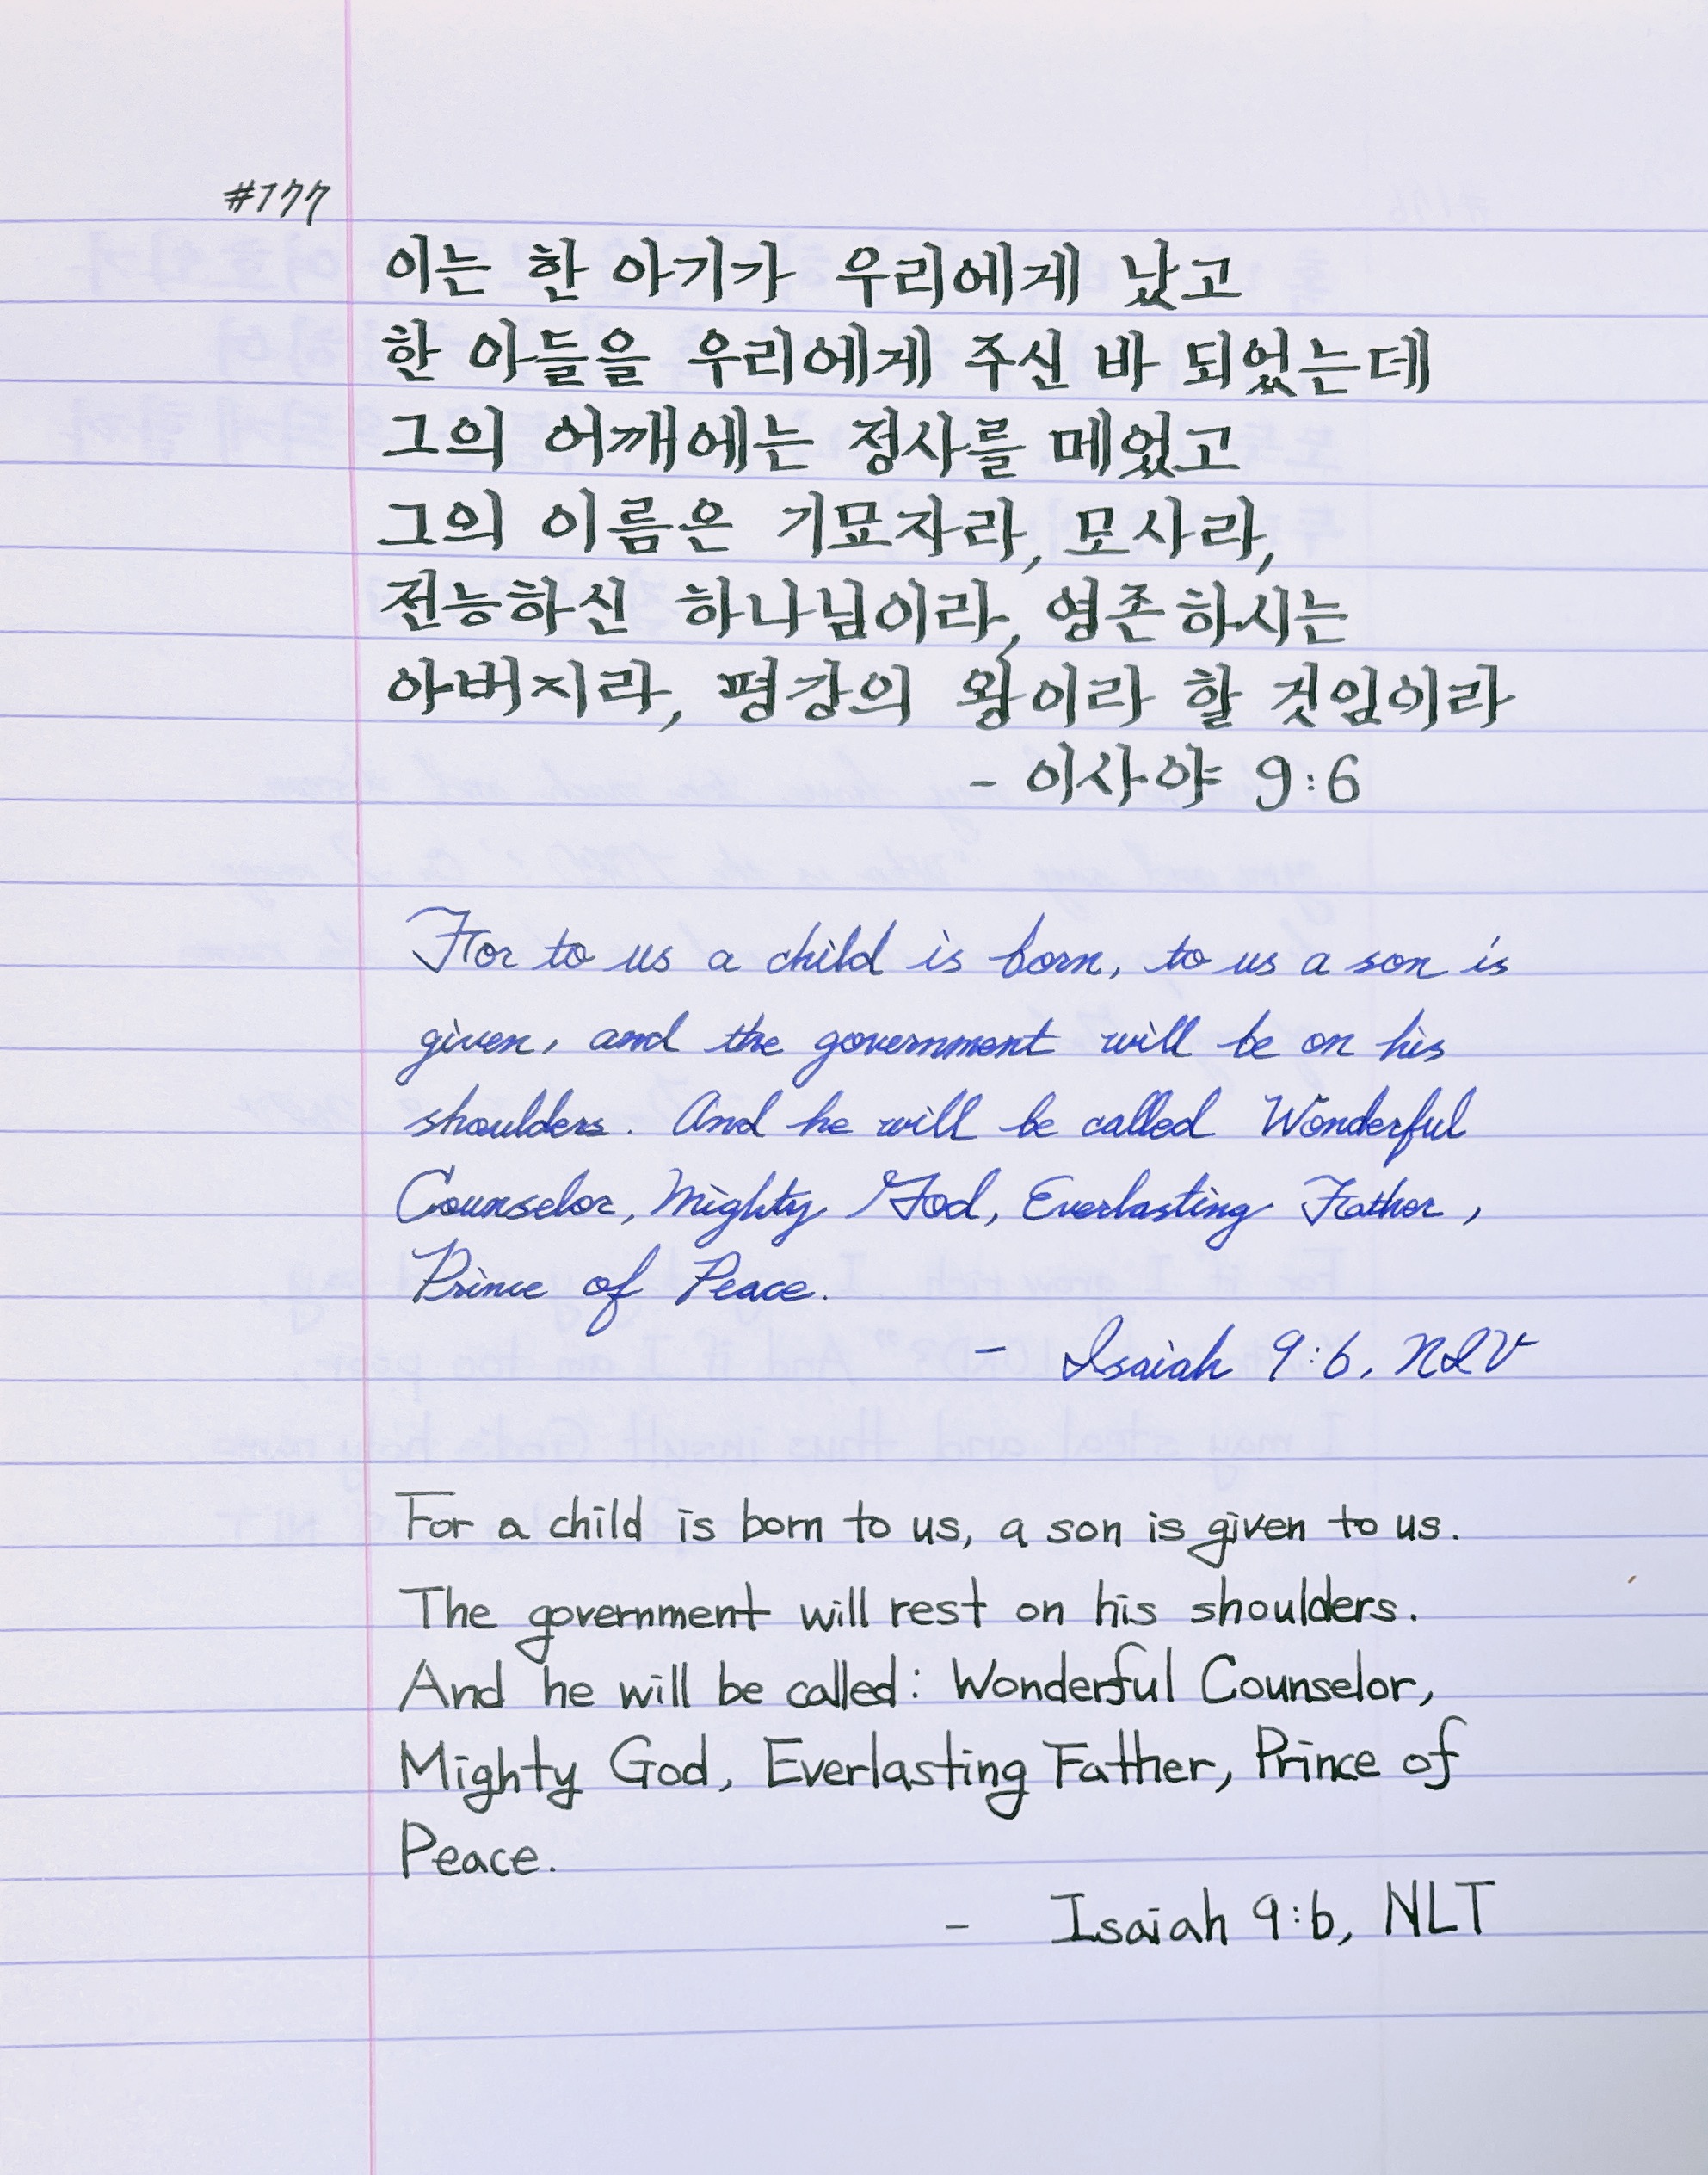 #177
이는 한 아기가 우리에게 났고
한 아들을 우리에게 주신 바 되었는데
그의 어깨에는 정사를 메었고
그의 이름은 기묘자라, 모사라,
전능하신 하나님이라, 영존하시는
아버지라, 평강의 왕이라 할 것임이라
- 이사야 9:6
For to us a child is born, to us a son is
given, and the government will be on his
shoulders. And he will be called Wonderful
Counselor, Mighty God, Everlasting Father,
Prince of Peace.
- Isaiah 9:6, NIV
For a child is born to us, a son is given to us.
The government will rest on his shoulders.
And he will be called: Wonderful Counselor,
Mighty God, Everlasting Father, Prince of
Peace.
- Isaiah 9:6, NLT